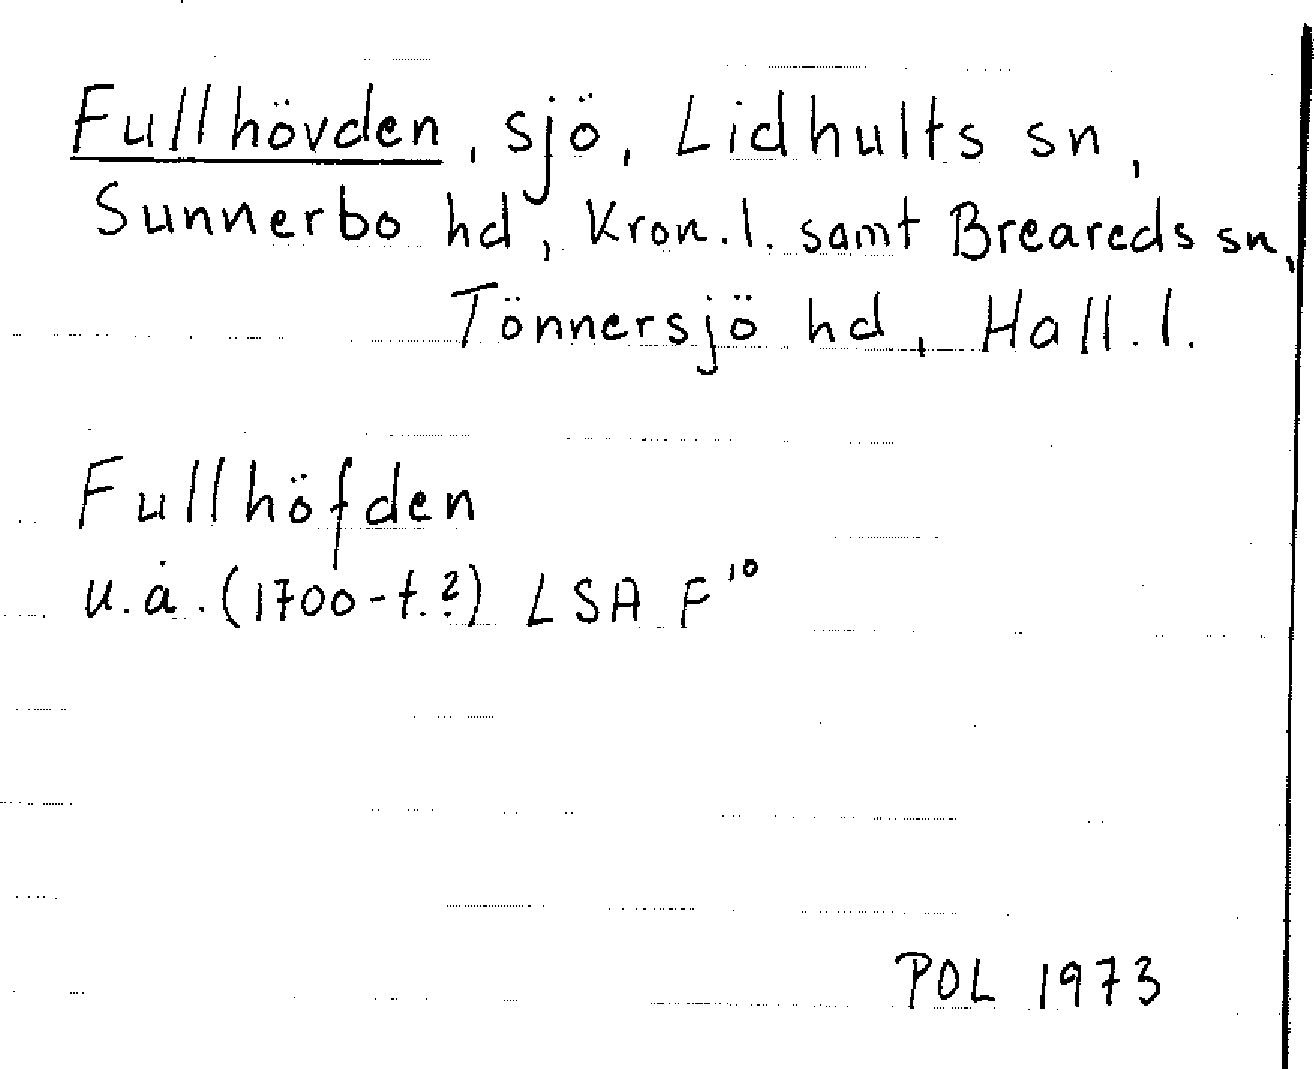 Fullhövden, sjö, Lidhults sn,
Sunnerbo hd, Kron.l. samt Breareds sn,
Tönnersjö hd, Hall.l.
Fullhöfden
u.å.(1700-t.?) LSA F¹⁰
POL 1973